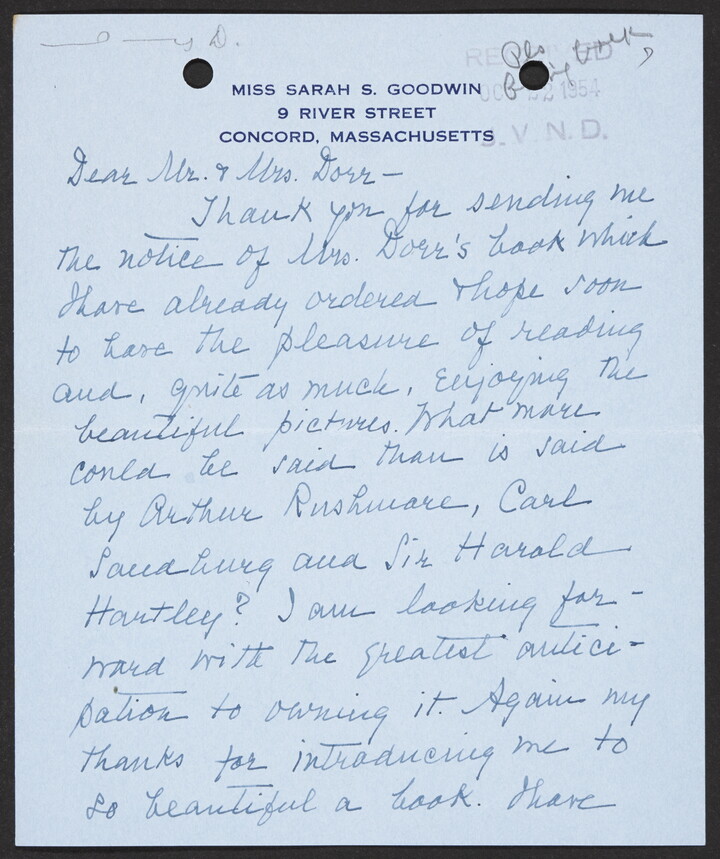 D.
Pls
bring back
RECEIVED
OCT 22 1954
J. V. N. D.
MISS SARAH S. GOODWIN
9 RIVER STREET
CONCORD, MASSACHUSETTS
Dear Mr. & Mrs. Dorr—
Thank you for sending me
the notice of Mrs. Dorr's book which
I have already ordered & hope soon
to have the pleasure of reading
and, quite as much, enjoying the
beautiful pictures. What more
could be said than is said
by Arthur Rushmore, Carl
Sandburg and Sir Harold
Hartley? I am looking for-
ward with the greatest antici-
pation to owning it. Again my
thanks for introducing me to
so beautiful a book. I have